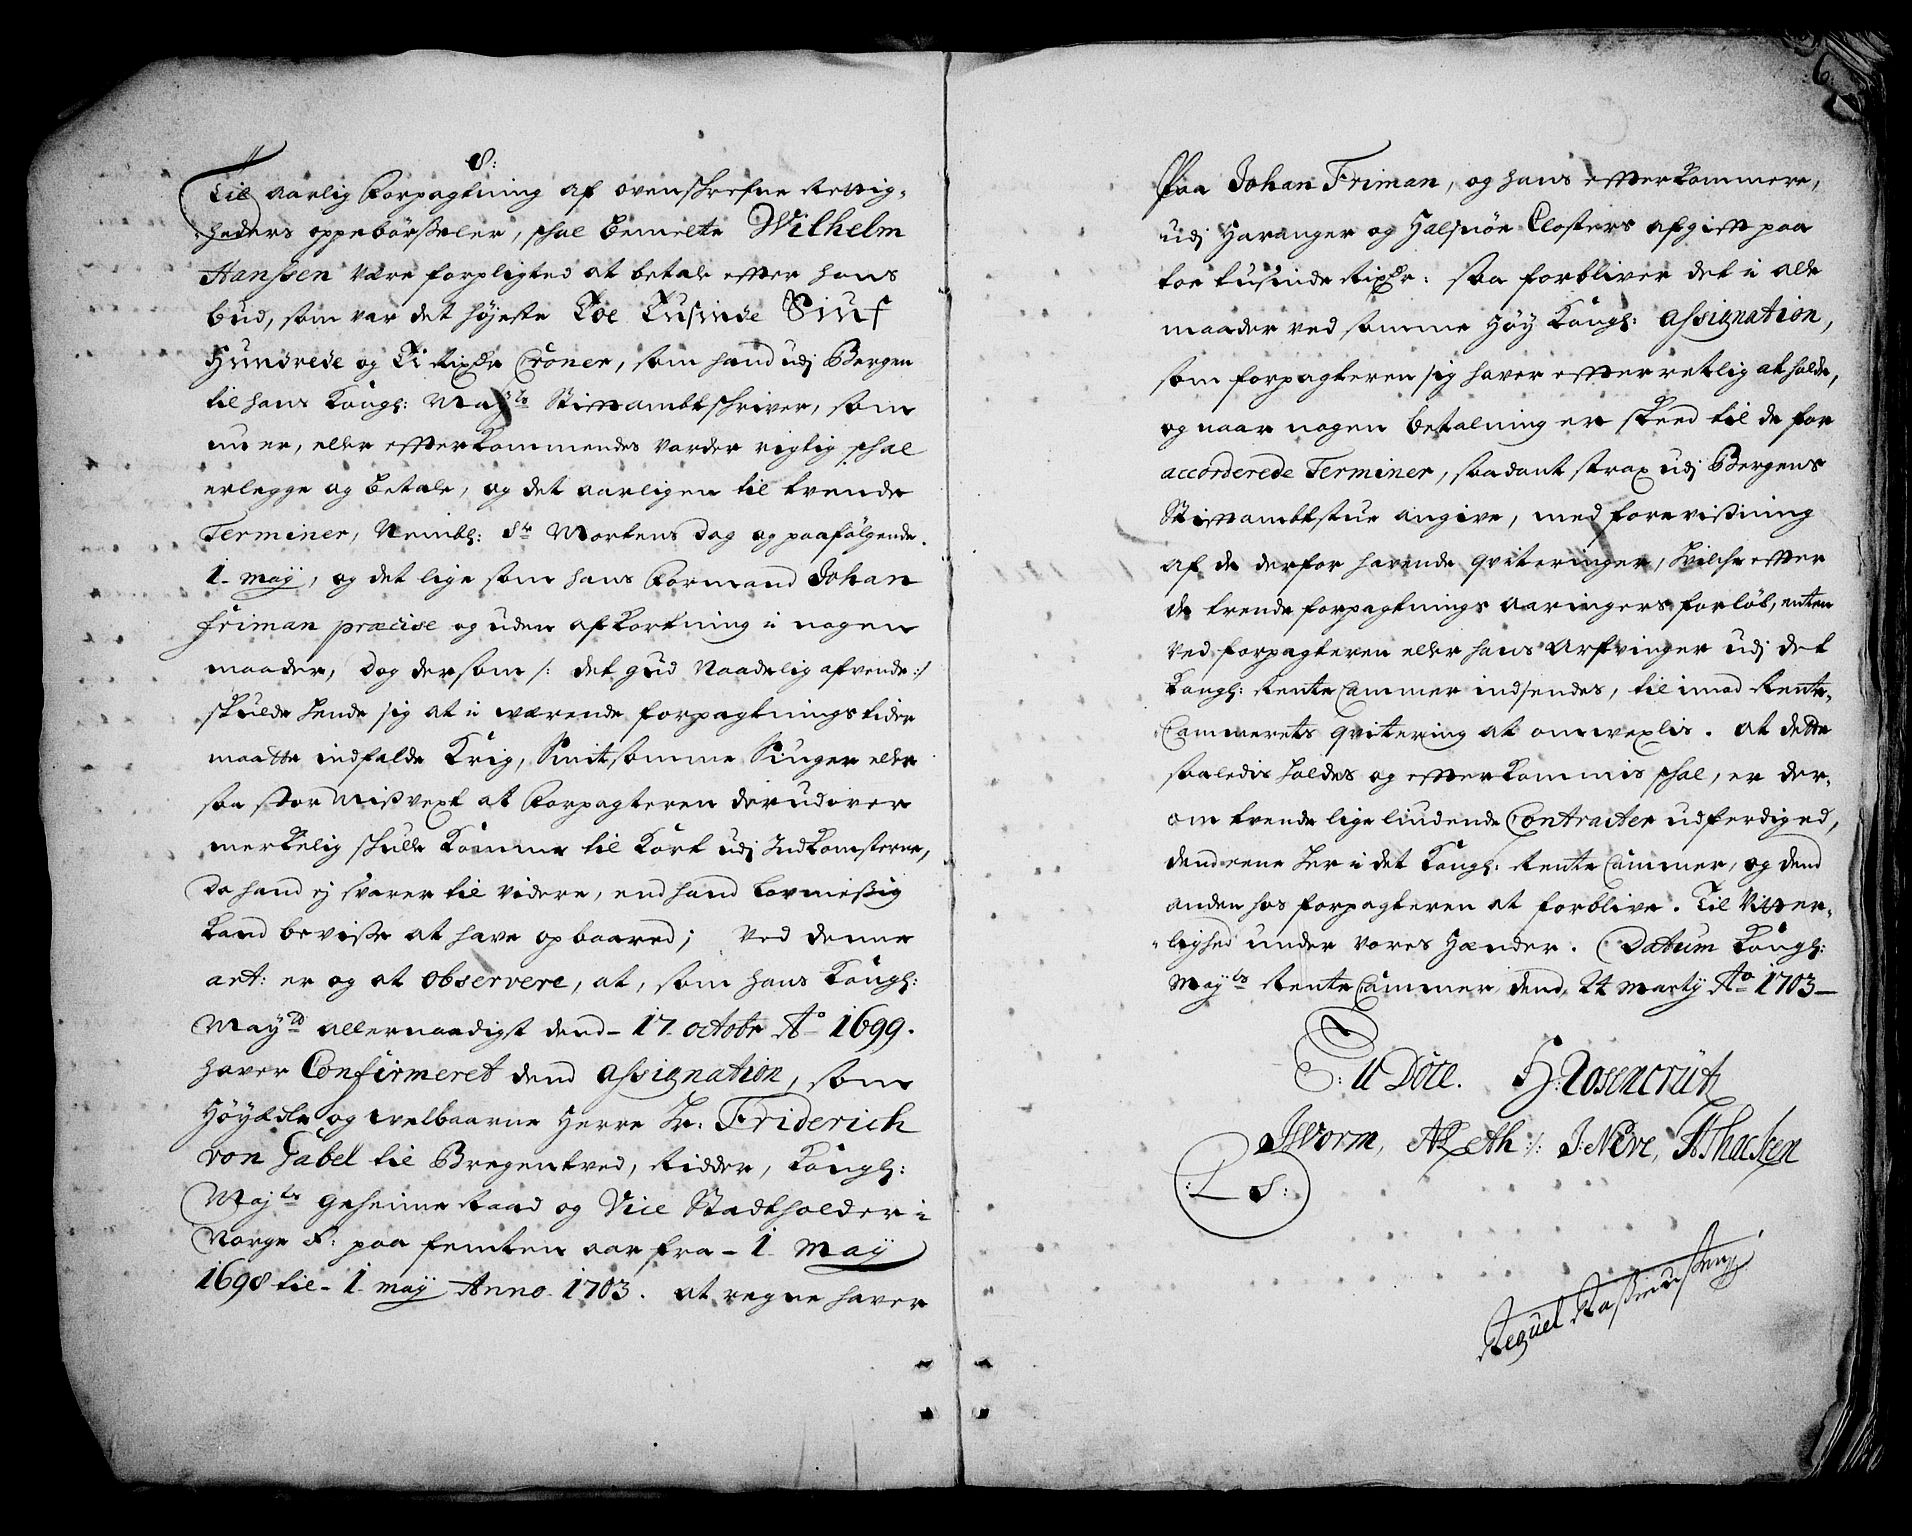 8:
Til aarlig Forpagtning af ovenschrefne Rettig-
heders oppebørsseler, schal bemelte Wilhelm
Hanssen være forpligted at betale efter hans
bud, som var det høyeste Toe Tusinde Siuf
Hundrede og Ti Rixdr Croner, som hand udj Bergen
til hans Kongl: Mayts Stiftambtschriver, som
nu er, eller efterkommendes vorder rigtig schal
erlegge og betale, og det aarligen til tvende
Terminer, Nembl: Ste Mortens dag og paafølgende
1 may, og det lige som hans Formand Johan
Friman præcise og uden afkortning i nogen
maader, dog dersom /: det gud Naadelig afvende :/
skulde hende sig at i værende forpagtnings tider
maatte indfalde Krig, Smitsomme Siuger eller
saa stor Misvext at Forpagteren derudover
merkelig skulle komme til kort udj Indkomsterne,
da hand ej svarer til videre, end hand lovmessig
kand bevisse at have opbaared; Ved denne
art: er og at observere, at, som hans Kongl:
Mayts allernaadigst dend 17 octobr Ao 1699.
haver Confirmeret dend assignation, som
Høyædle og welbaarne Herre Hr. Friderich
von Gabel til Bregentved, Ridder, Kongl:
Majts geheime Raad og Vice Stadtholder i
Norge &: paa femten aar fra 1 may
1698 til 1 may Anno 1703. at regne haver
6.
Paa Johan Friman, og hans efterkommere,
udj Haranger og Halsnøe Closters afgift paa
toe tusinde Rixdr: saa forbliver det i alle
maader ved samme høy Kongl: assignation,
som forpagteren sig haver efterretlig at holde,
og naar nogen betalning er skeed til de for
accorderede Terminer, saadant strax udj Bergens
Stiftambtstue angive, med forevisning
af de derfor havende qviteringer, hvilche efter
de trende forpagtnings aaringers forløb, enten
ved forpagteren eller hans Arfvinger udj det
Kongl: Rente Cammer indsendes, til imod Rente-
Cammerets qvitering at omvexlis. at dette
saaledis holdes og efterkommis schal, er der-
om tvende lige liudende Contracter udferdiged,
dend eene her i det Kongl: Rente Cammer, og dend
anden hos forpagteren at forblive. Til Vitter-
lighed under vores Hænder. Datum Kongl:
Mayts Rente Cammer dend 24 Marty Ao 1703
C: U Dote. H: Rosencrütz
J Worm, Seth:/: J: Neve, A Thacken
: L S :